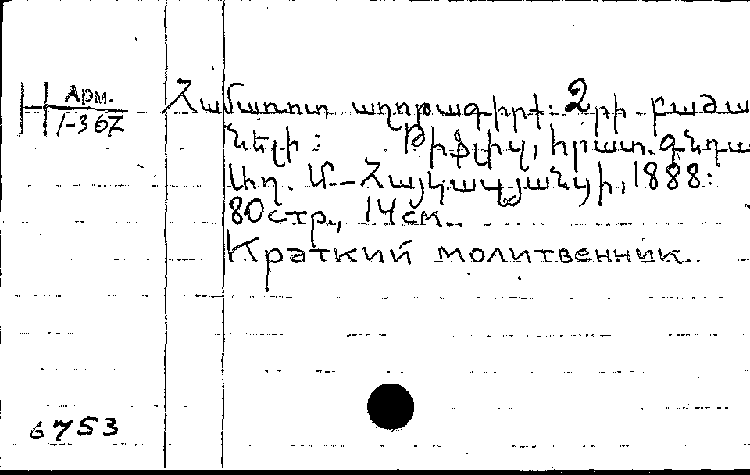 Н Арм.
1-367
Համառոտ աղօթագիրք. 2րի բաժա
նելի։ Թիֆլիզ, հրատ. գնդա
Աղ. Մ-Հայկազյանցի, 1888։
80стр., 14см.
Краткий молитвенник.
6753